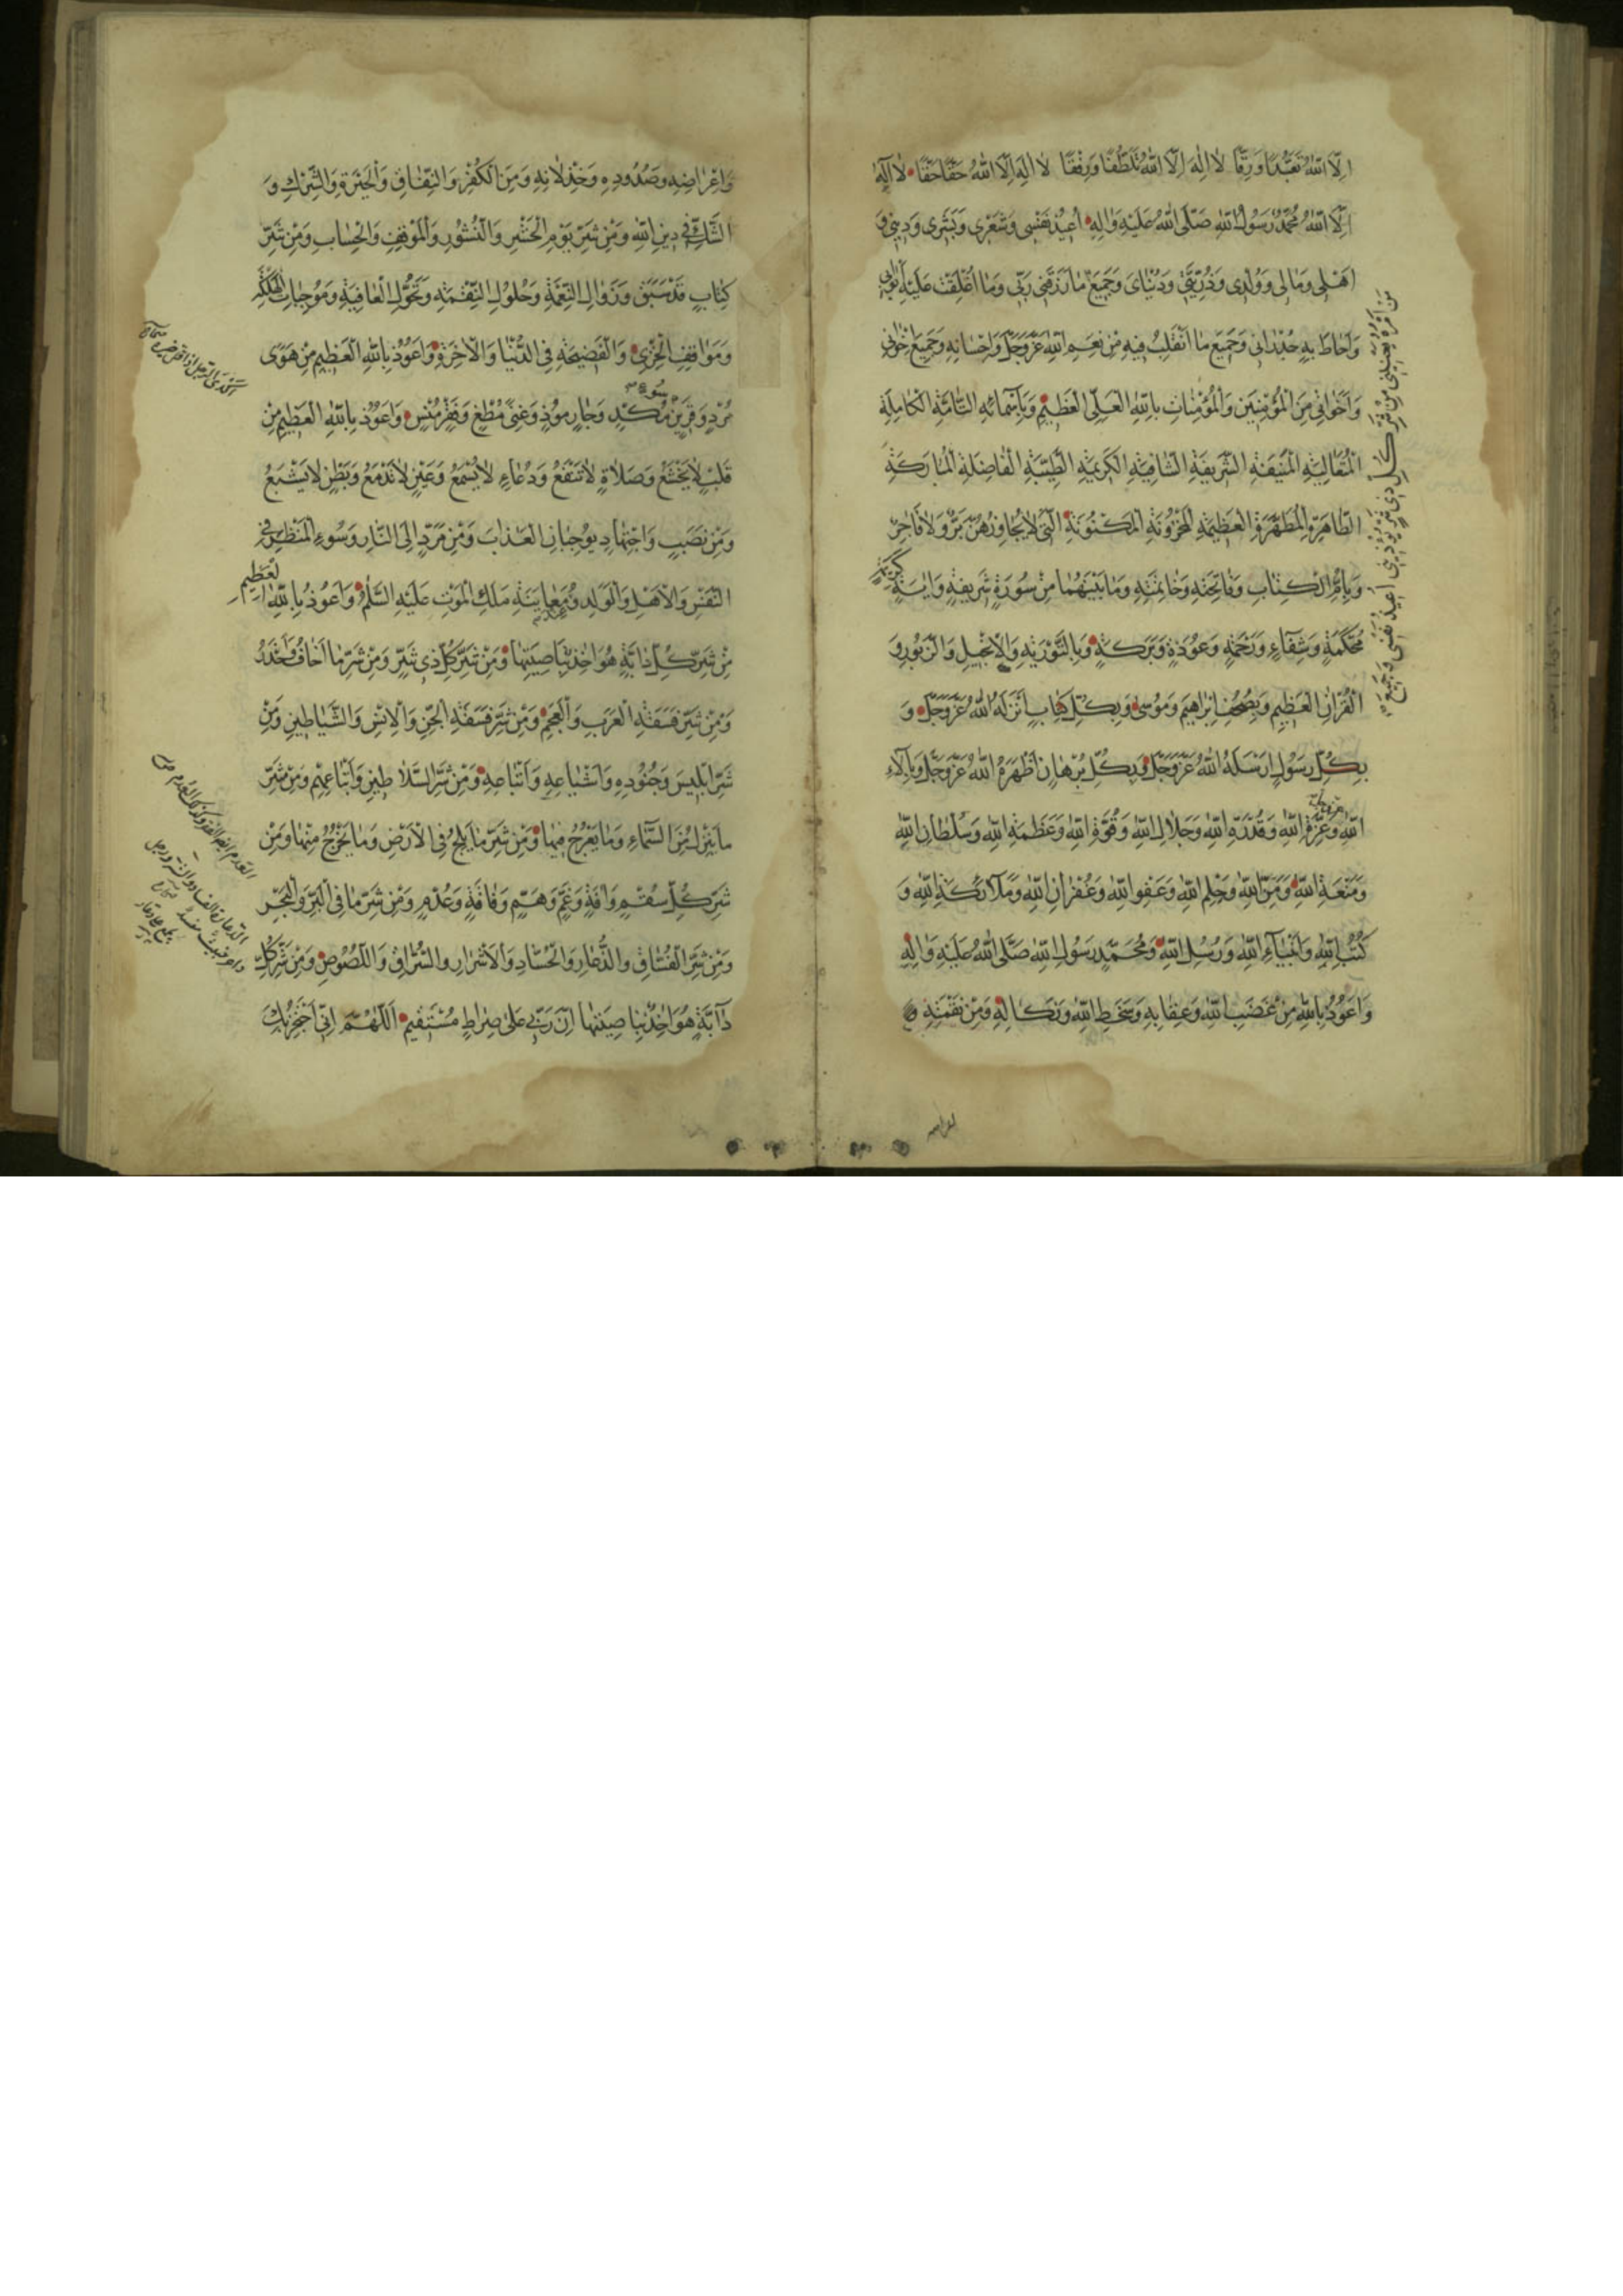 اِلَّا اللّٰهُ تَعَبُّدًا وَرِقًّا لٰا اِلٰهَ اِلَّا اللّٰهُ تَلَطُّفًا وَرِفْقًا لٰا اِلٰهَ اِلَّا اللّٰهُ حَقًّا حَقًّا لٰا اِلٰهَ
اِلَّا اللّٰهُ مُحَمَّدٌ رَسُولُ اللّٰهِ صَلَّى اللّٰهُ عَلَيْهِ وَاٰلِهِ اُعِيذُ نَفْسِى وَشَعْرِى وَبَشَرِى وَدِينِى وَ
اَهْلِى وَمٰالِى وَوُلْدِى وَذُرِّيَّتِى وَدُنْيٰاىَ وَجَمِيعَ مٰا رَزَقَنِى رَبِّى وَمٰا اُغْلِقَتْ عَلَيْهِ اَبْوٰابِى
وَاَحٰاطَ بِهِ جُدْرٰانِى وَجَمِيعَ مٰا اَتَقَلَّبُ فِيهِ مِنْ نِعَمِ اللّٰهِ عَزَّوَجَلَّ وَاِحْسٰانِهِ وَجَمِيعَ اِخْوٰانِى
وَاَخَوٰاتِى مِنَ الْمُؤْمِنِينَ وَالْمُؤْمِنٰاتِ بِاللّٰهِ الْعَلِىِّ الْعَظِيمِ وَبِاَسْمٰائِهِ التّٰامَّةِ الْكٰامِلَةِ
الْمُتَعٰالِيَةِ الْمُنِيفَةِ الشَّرِيفَةِ الشّٰافِيَةِ الْكَرِيمَةِ الطَّيِّبَةِ الْفٰاضِلَةِ الْمُبٰارَكَةِ
الطّٰاهِرَةِ الْمُطَهَّرَةِ الْعَظِيمَةِ الْمَخْزُونَةِ الْمَكْنُونَةِ الَّتِى لٰا يُجٰاوِزُهُنَّ بَرٌّ وَلٰا فٰاجِرٌ
وَبِاُمِّ الْكِتٰابِ وَفٰاتِحَتِهِ وَخٰاتِمَتِهِ وَمٰا بَيْنَهُمٰا مِنْ سُورَةٍ شَرِيفَةٍ وَاٰيَةٍ كَرِيمَةٍ
مُحْكَمَةٍ وَشِفٰاءٍ وَرَحْمَةٍ وَعُوذَةٍ وَبَرَكَةٍ وَبِالتَّوْرٰيةِ وَالْاِنْجِيلِ وَالزَّبُورِ وَ
الْقُرْاٰنِ الْعَظِيمِ وَبِصُحُفِ اِبْرٰاهِيمَ وَمُوسٰى وَبِكُلِّ كِتٰابٍ اَنْزَلَهُ اللّٰهُ عَزَّوَجَلَّ وَ
بِكُلِّ رَسُولٍ اَرْسَلَهُ اللّٰهُ عَزَّوَجَلَّ وَبِكُلِّ بُرْهٰانٍ اَظْهَرَهُ اللّٰهُ عَزَّوَجَلَّ وَبِاٰلٰاءِ
اللّٰهِ عَزَّوَجَلَّ وَعِزَّةِ اللّٰهِ وَقُدْرَةِ اللّٰهِ وَجَلٰالِ اللّٰهِ وَقُوَّةِ اللّٰهِ وَعَظَمَةِ اللّٰهِ وَسُلْطٰانِ اللّٰهِ
وَمَنَعَةِ اللّٰهِ وَمَنِّ اللّٰهِ وَحِلْمِ اللّٰهِ وَعَفْوِ اللّٰهِ وَغُفْرٰانِ اللّٰهِ وَمَلٰائِكَةِ اللّٰهِ وَ
كُتُبِ اللّٰهِ وَاَنْبِيٰاءِ اللّٰهِ وَرُسُلِ اللّٰهِ وَمُحَمَّدٍ رَسُولِ اللّٰهِ صَلَّى اللّٰهُ عَلَيْهِ وَاٰلِهِ
وَاَعُوذُ بِاللّٰهِ مِنْ غَضَبِ اللّٰهِ وَعِقٰابِهِ وَسَخَطِ اللّٰهِ وَنَكٰالِهِ وَمِنْ نِقْمَتِهِ
مَنْ اَمْرُهُ يَعْنِينِى مِنْ شَرِّ كُلِّ ذِى شَرٍّ يُؤْذِينِى اُعِيذُ نَفْسِى وَجَمِيعَ
وَاِعْرٰاضِهِ وَصُدُودِهِ وَخِذْلٰانِهِ وَمِنَ الْكُفْرِ وَالنِّفٰاقِ وَالْحَيْرَةِ وَالشِّرْكِ وَ
الشَّكِّ فِى دِينِ اللّٰهِ وَمِنْ شَرِّ يَوْمِ الْحَشْرِ وَالنُّشُورِ وَالْمَوْقِفِ وَالْحِسٰابِ وَمِنْ شَرِّ
كِتٰابٍ قَدْ سَبَقَ وَزَوٰالِ النِّعْمَةِ وَحُلُولِ النِّقْمَةِ وَتَحَوُّلِ الْعٰافِيَةِ وَمُوجِبٰاتِ الْهَلَكَةِ
وَمَوٰاقِفِ الْخِزْىِ وَالْفَضِيحَةِ فِى الدُّنْيٰا وَالْاٰخِرَةِ وَاَعُوذُ بِاللّٰهِ الْعَظِيمِ مِنْ هَوًى
مُرْدٍ وَقَرِينِ سُوءٍ مُكْدٍ وَجٰارٍ مُوذٍ وَغِنًى مُطْغٍ وَفَقْرٍ مُنْسٍ وَاَعُوذُ بِاللّٰهِ الْعَظِيمِ مِنْ
قَلْبٍ لٰا يَخْشَعُ وَصَلٰاةٍ لٰا تَنْفَعُ وَدُعٰاءٍ لٰا يُسْمَعُ وَعَيْنٍ لٰا تَدْمَعُ وَبَطْنٍ لٰا يَشْبَعُ
وَمِنْ نَصَبٍ وَاجْتِهٰادٍ يُوجِبٰانِ الْعَذٰابَ وَمِنْ مَرَدٍّ اِلَى النّٰارِ وَسُوءِ الْمَنْظَرِ فِى
النَّفْسِ وَالْاَهْلِ وَالْوَلَدِ وَمُعٰايَنَةِ مَلَكِ الْمَوْتِ عَلَيْهِ السَّلٰمُ وَاَعُوذُ بِاللّٰهِ الْعَظِيمِ
مِنْ شَرِّ كُلِّ دٰابَّةٍ هُوَ اٰخِذٌ بِنٰاصِيَتِهٰا وَمِنْ شَرِّ كُلِّ ذِى شَرٍّ وَمِنْ شَرِّ مٰا اَخٰافُ وَاَحْذَرُ
وَمِنْ شَرِّ فَسَقَةِ الْعَرَبِ وَالْعَجَمِ وَمِنْ شَرِّ فَسَقَةِ الْجِنِّ وَالْاِنْسِ وَالشَّيٰاطِينِ وَمِنْ
شَرِّ اِبْلِيسَ وَجُنُودِهِ وَاَشْيٰاعِهِ وَاَتْبٰاعِهِ وَمِنْ شَرِّ السَّلٰاطِينِ وَاَتْبٰاعِهِمْ وَمِنْ شَرِّ
مٰا يَنْزِلُ مِنَ السَّمٰاءِ وَمٰا يَعْرُجُ فِيهٰا وَمِنْ شَرِّ مٰا يَلِجُ فِى الْاَرْضِ وَمٰا يَخْرُجُ مِنْهٰا وَمِنْ
شَرِّ كُلِّ سُقْمٍ وَاٰفَةٍ وَغَمٍّ وَهَمٍّ وَفٰاقَةٍ وَعُدْمٍ وَمِنْ شَرِّ مٰا فِى الْبَرِّ وَالْبَحْرِ
وَمِنْ شَرِّ الْفُسّٰاقِ وَالدُّعّٰارِ وَالْحُسّٰادِ وَالْاَشْرٰارِ وَالسُّرّٰاقِ وَاللُّصُوصِ وَمِنْ شَرِّ كُلِّ
دٰابَّةٍ هُوَ اٰخِذٌ بِنٰاصِيَتِهٰا اِنَّ رَبِّى عَلٰى صِرٰاطٍ مُسْتَقِيمٍ اَللّٰهُمَّ اِنِّى اَحْتَجِزُ بِكَ